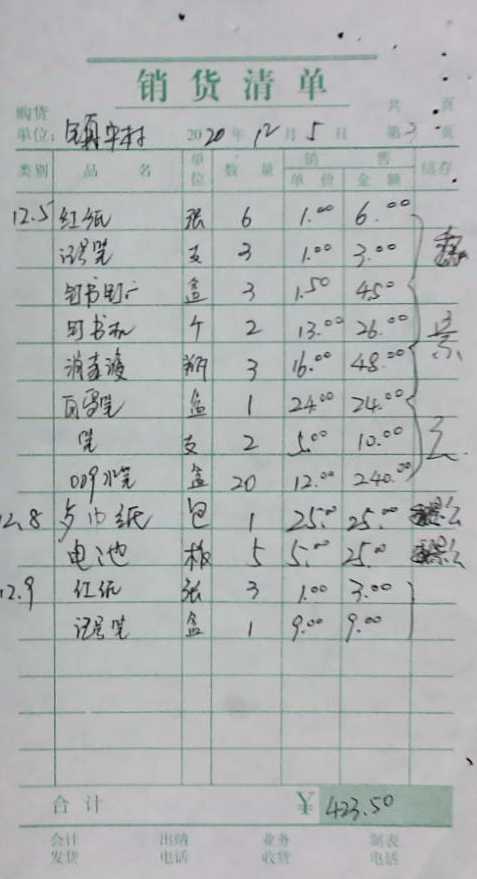 销货清单
购货 共 页
单位: 镇中村 2020年12月5日 第3页
类别 品名 单位 数量 销售 结存
单价 金额
12.5 红纸 张 6 1.00 6.00
记号笔 支 3 1.00 3.00
钉书钉 盒 3 1.50 4.50
钉书机 个 2 13.00 26.00
消毒液 瓶 3 16.00 48.00
盒 1 24.00 24.00
笔 支 2 5.00 10.00
009水笔 盒 20 12.00 240.00
12.8 纸 包 1 25.00 25.00
电池 板 5 5.00 25.00
12.9 红纸 张 3 1.00 3.00
记号笔 盒 1 9.00 9.00
合计 ¥ 423.50
会计 出纳 业务 制表
发货 电话 收货 电话